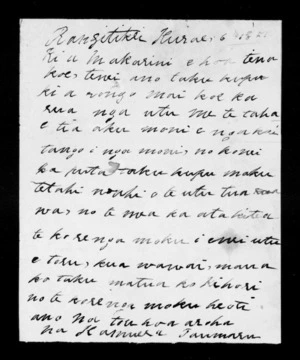 Rangitikei Hurae, 6
ki a Makarini e hoa tena
koe, tenei ano taku kupu
ki a rongo mai koe ka
rua nga utu me te taha
e tia aku moni e nga kai
tango i nga moni, no konei
ka puta taku kupu maku
tetahi o te utu tua
wa, no te mea ka ata kitia
te korenga moku i enei utu
e toru, kua wawai, mana
ko taku matua ko Kihori
no te korenga moku heoti
ano na tou hoa aroha
na Kamuera Taumaru